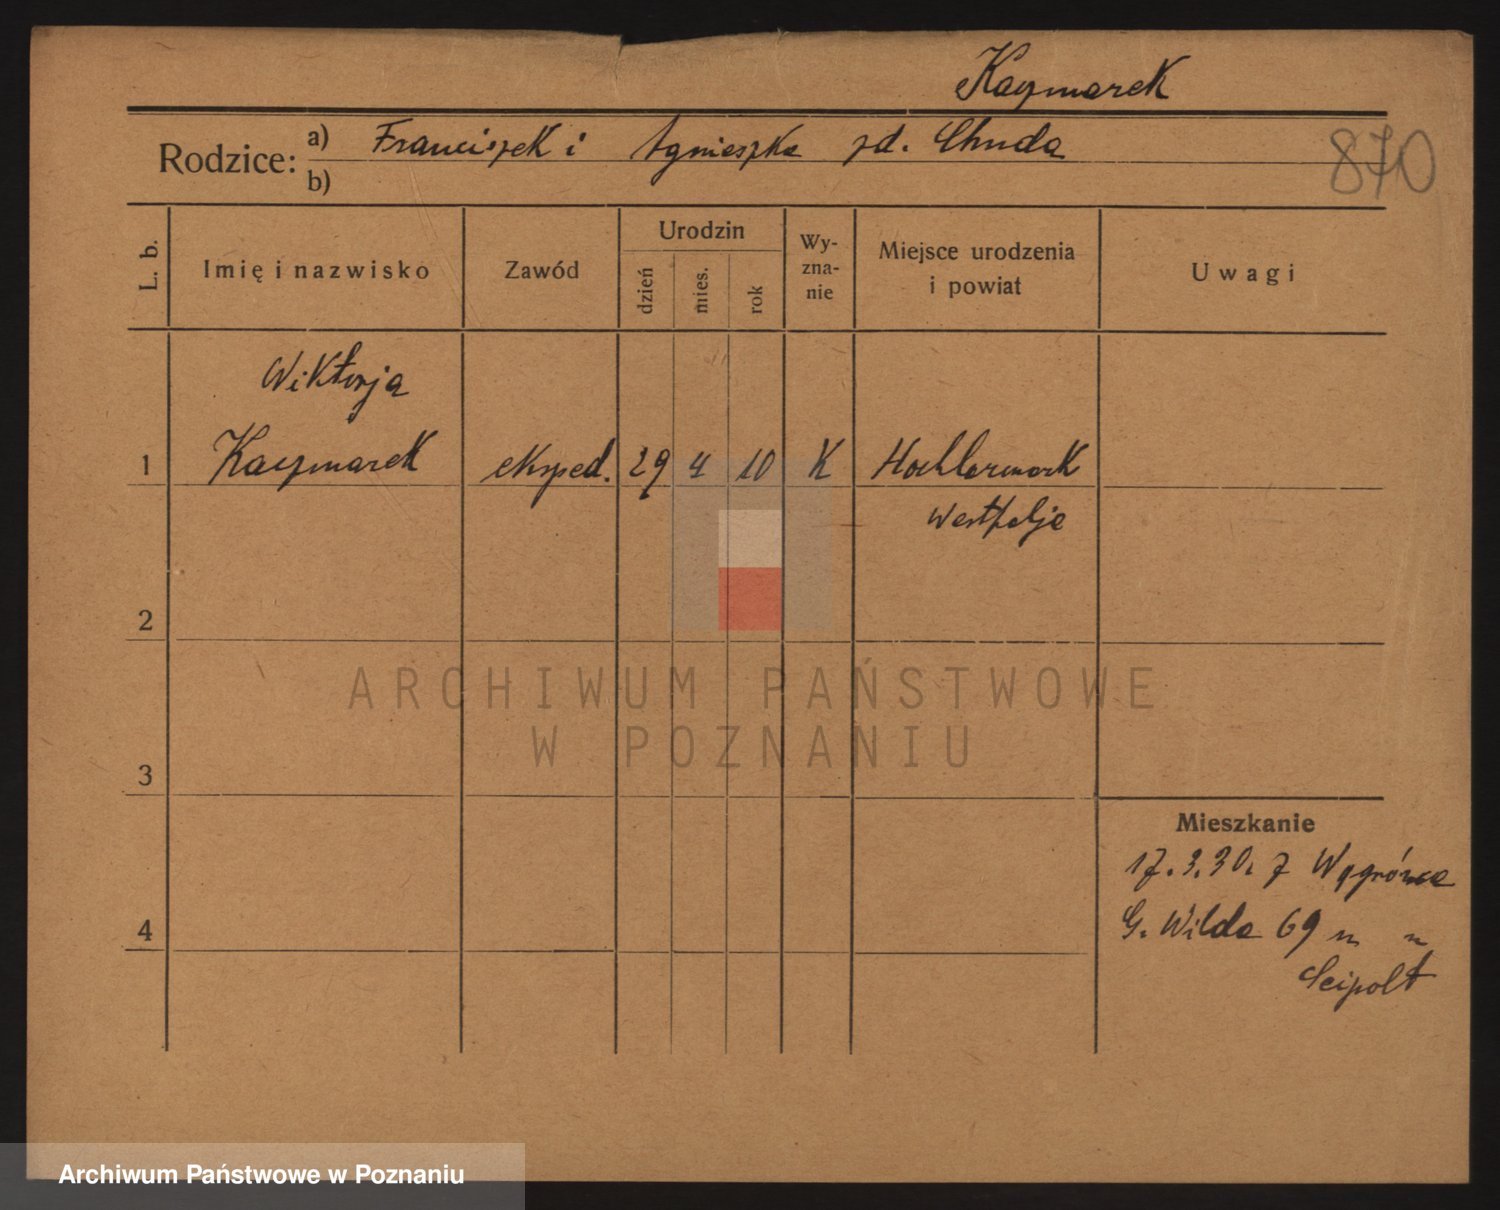 Kaczmarek
Rodzice: a) Franciszek i Agnieszka zd. Chuda
b)
870
L. b.
Imię i nazwisko
Zawód
Urodzin
dzień
mies.
rok
Wy-
zna-
nie
Miejsce urodzenia
i powiat
Uwagi
Wiktorja
1 Kaczmarek eksped. 29 4 10 K Hochlarmark
Westfalja
2
3
4
ARCHIWUM PAŃSTWOWE
W POZNANIU
Mieszkanie
17.3.30. z Wągrówca
G. Wilda 69 m
Seipolt
Archiwum Państwowe w Poznaniu